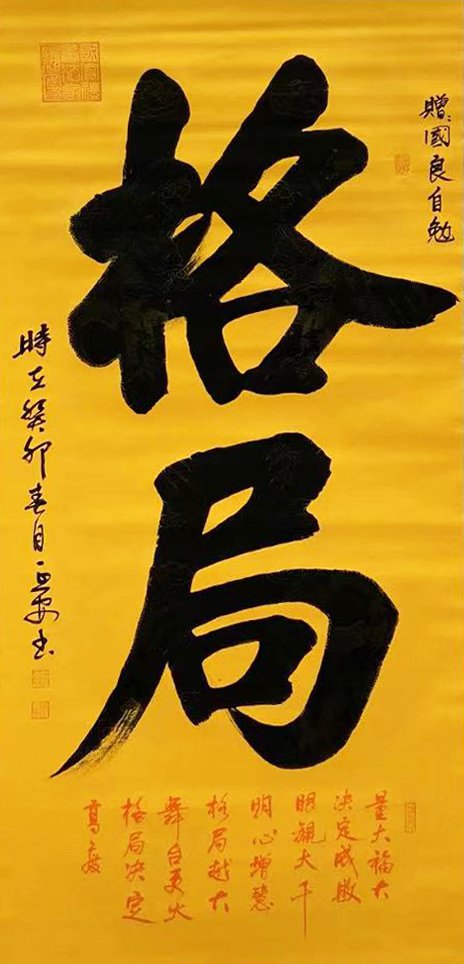 贈:國良自勉
格局
時在癸卯春月正安书
量大福大
决定成敗
眼觀大千
明心增慧
格局越大
舞台更大
格局决定
高度